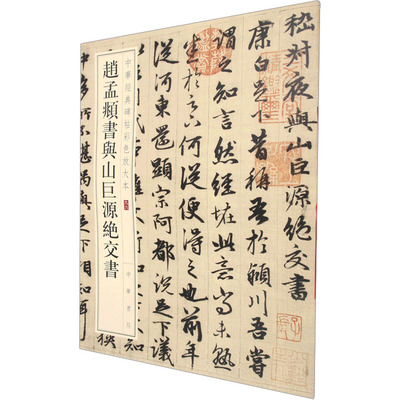 嵇叔夜與山巨源絶交書
康白足下昔稱吾於潁川吾嘗
謂之知言然經怪此意尚未熟
悉於足下何從便得之也前年
從河東還顯宗阿都說足下議
中華經典碑帖彩色放大本
趙孟頫書與山巨源絶交書
中華書局
中多所不堪偶與足下相知耳